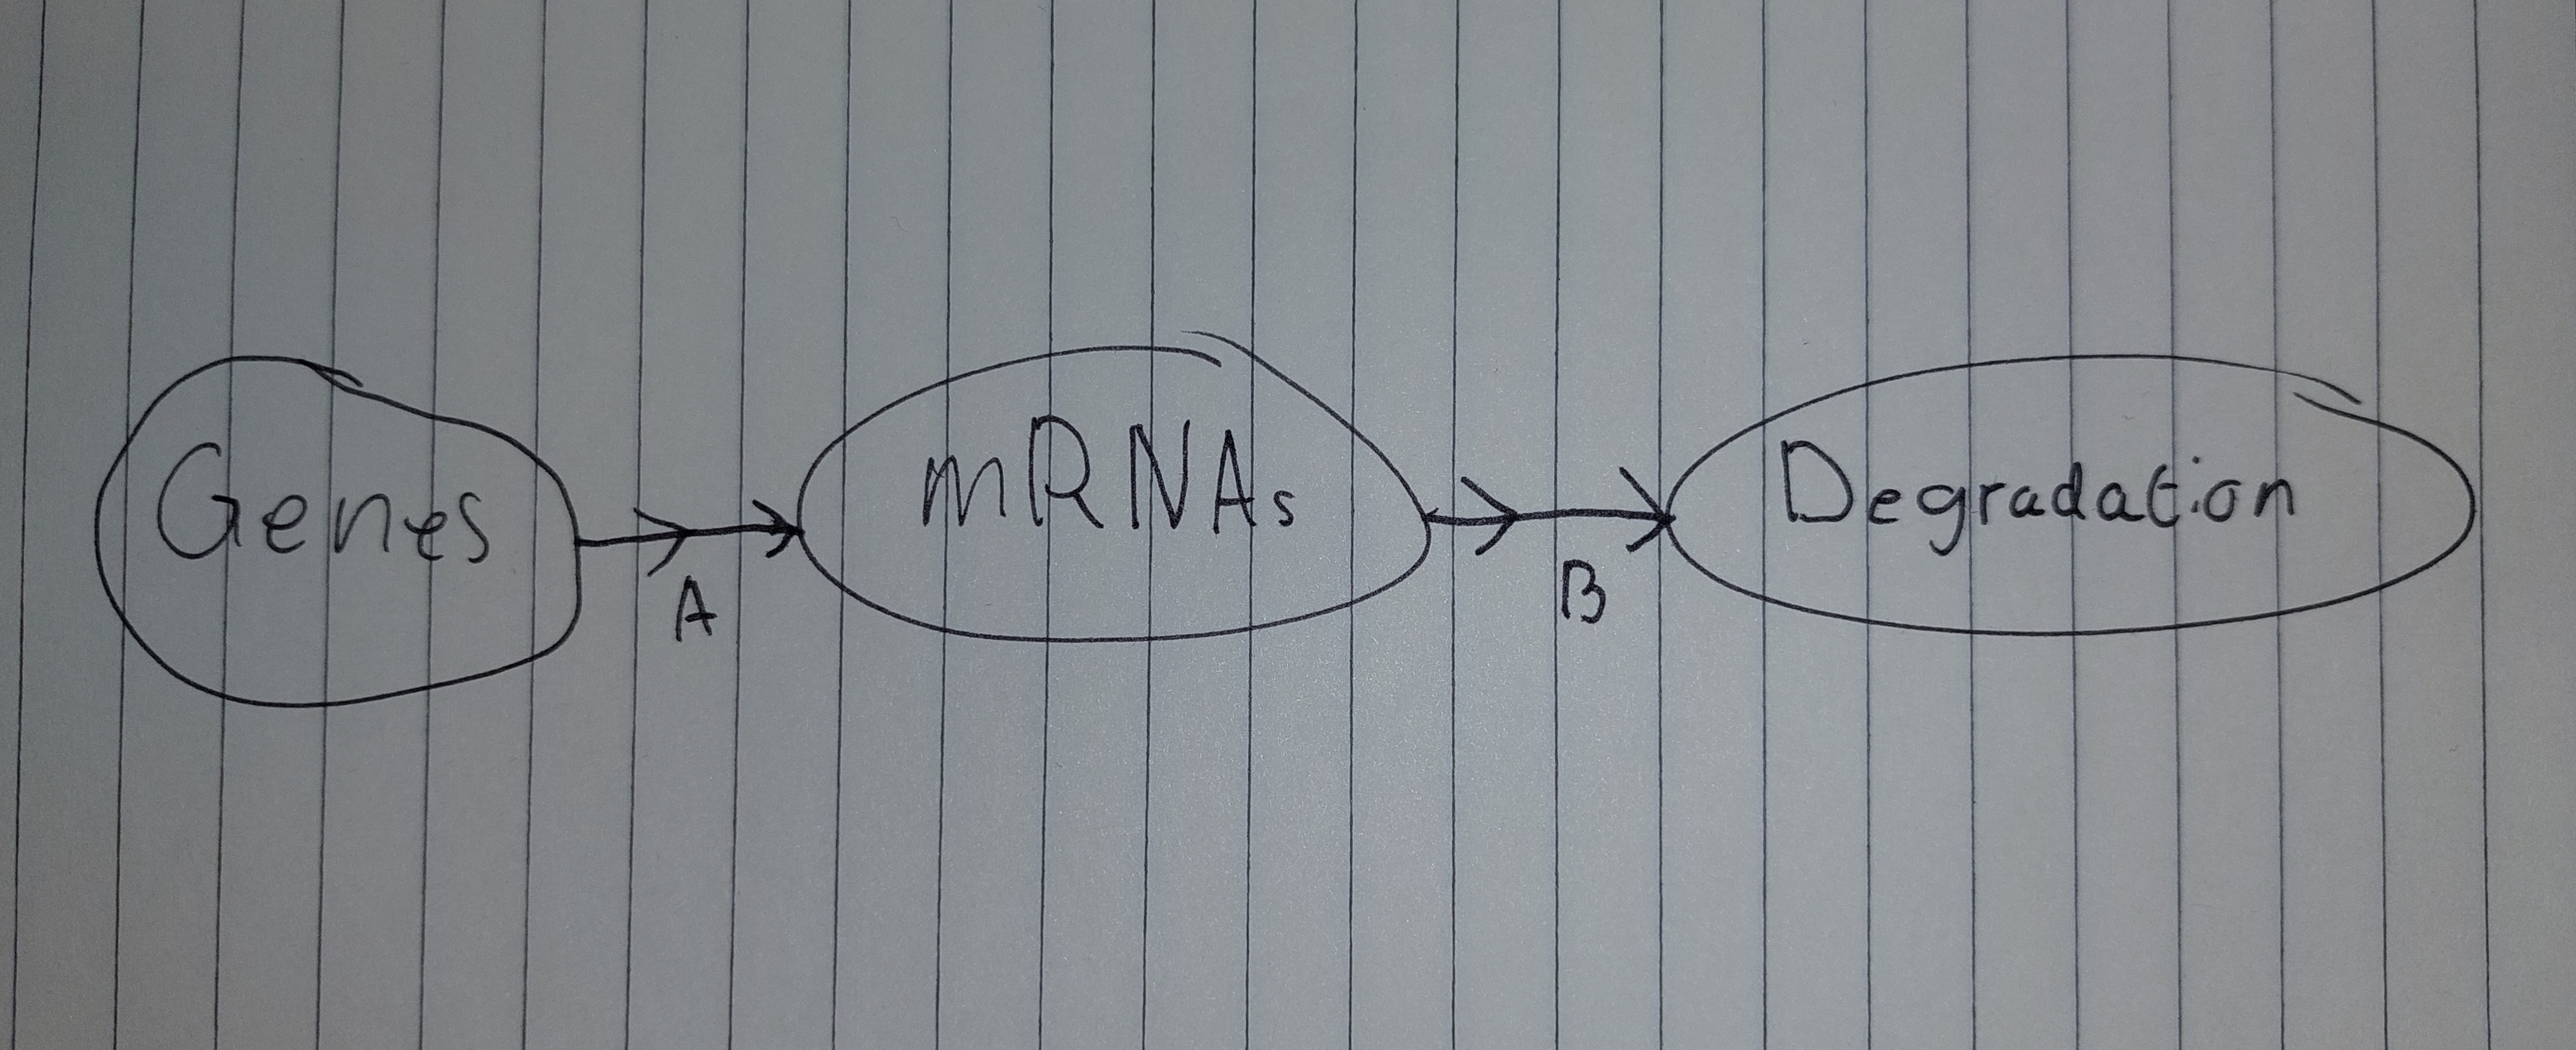 Genes
A
mRNAs
B
Degradation